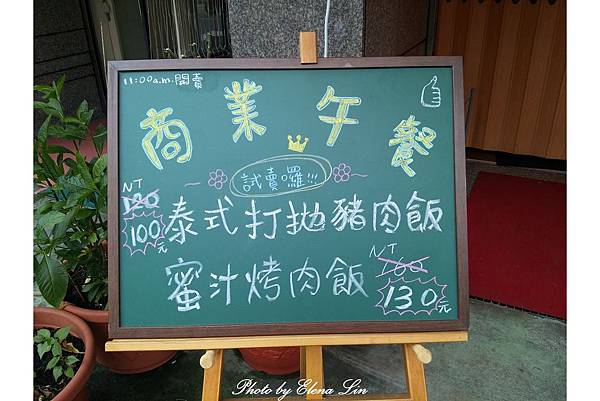 11:00a.m.開賣
商業午餐
試賣囉!!!
NT 120 100元 泰式打拋豬肉飯
蜜汁烤肉飯 NT 160 130元
Photo by Elena Lin